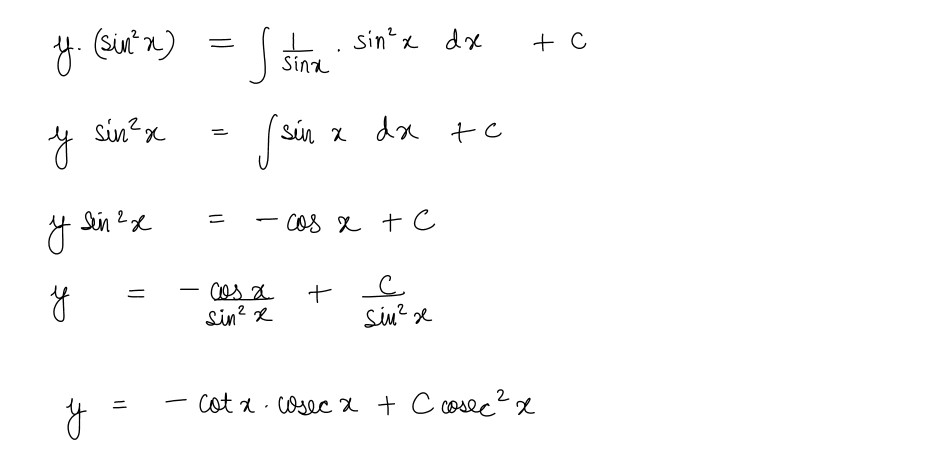 y. (sin²x) = ∫ 1/sinx . sin²x dx + C
y sin²x = ∫ sin x dx + C
y sin²x = - cos x + C
y = - cos x/sin² x + C/sin² x
y = - cot x . cosec x + C cosec² x